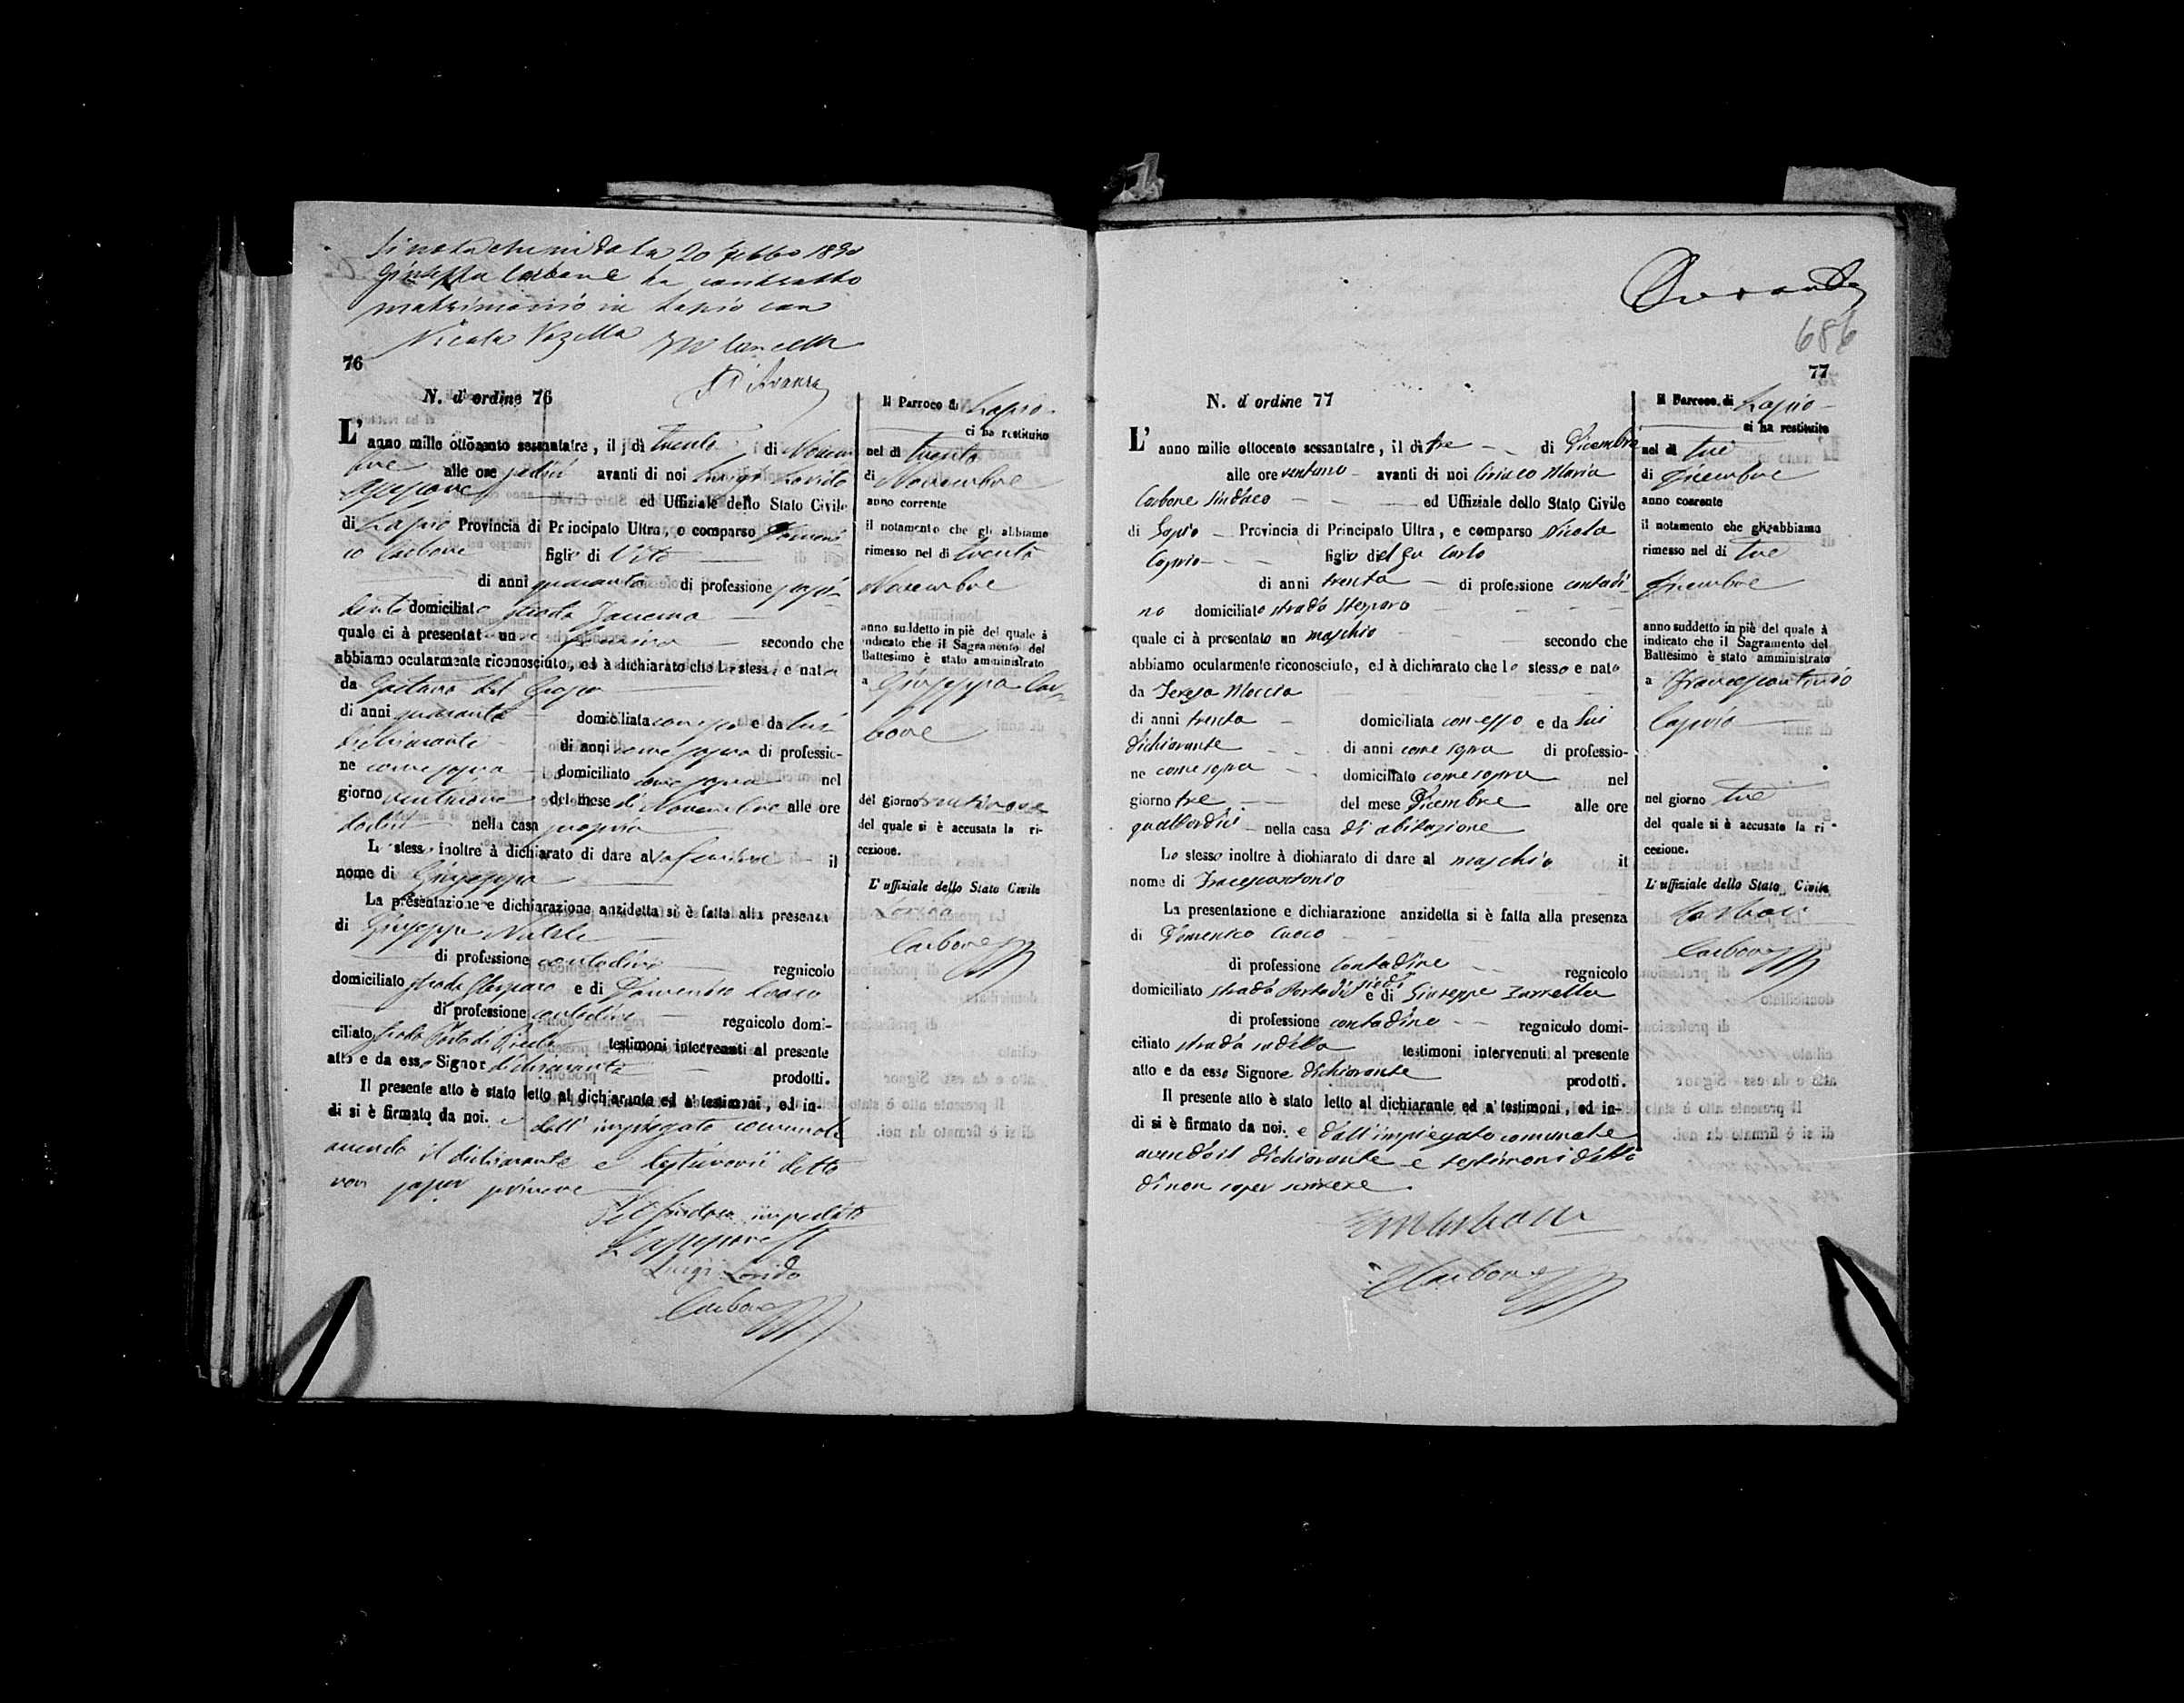 Si nota che in data 20 Febbo 1890
Giuseppa Carbone ha contratto
matrimonio in Lapio con
Nicola Vozella
D'Avanza
76
N. d'ordine 76
L' anno mille ottocento sessantatre, il dì trenta di Novem
bre alle ore sedici avanti di noi Luigi Lovido
Assessore ed Uffiziale dello Stato Civile
di Lapio Provincia di Principato Ultra, e comparso Domeni
co Carbone figlio di Vito
di anni quaranta di professione possi-
dente domiciliato strada
quale ci à presentato una femina secondo che
abbiamo ocularmente riconosciuto, ed à dichiarato che la stessa e nata
da Gaetana Del
di anni quaranta domiciliata con esso e da lui
dichiarante di anni come sopra di professio-
ne come sopra domiciliato come sopra nel
giorno ventinove del mese di Novembre alle ore
dodici nella casa propria
Lo stesso inoltre à dichiarato di dare alla femina il
nome di Giuseppa
La presentazione e dichiarazione anzidetta si è fatta alla presenza
di Giuseppe Natale
di professione contadino regnicolo
domiciliato strada Stesparo e di Domenico Cuoco
di professione contadino regnicolo domi-
ciliato strada Porta di Piedi testimoni intervenuti al presente
atto e da esso Signor dichiarante prodotti.
Il presente atto è stato letto al dichiarante ed a' testimoni, ed in-
di si è firmato da noi. e dall' impiegato comunale
avendo il dichiarante e testimonii detto
non saper scrivere
Pel Sindaco impedito
L'assessore
Luigi Lovido
Carbone
Il Parroco di Lapio
ci ha restituito
nel dì trenta
di Novembre
anno corrente
il notamento che gli abbiamo
rimesso nel dì trenta
Novembre
anno suddetto in piè del quale à
indicato che il Sagramento del
Battesimo è stato amministrato
a Giuseppa Car-
bone
del giorno ventinove
del quale si è accusata la ri-
cezione.
L'uffiziale dello Stato Civile
Lovido
Carbone
686
77
N. d'ordine 77
L' anno mille ottocento sessantatre, il dì tre di Dicembre
alle ore ventuno avanti di noi Ciriaco Maria
Carbone Sindaco ed Uffiziale dello Stato Civile
di Lapio Provincia di Principato Ultra, e comparso Nicola
Caprio figlio del fu Carlo
di anni trenta di professione contadi-
no domiciliato strada Stesparo
quale ci à presentato un maschio secondo che
abbiamo ocularmente riconosciuto, ed à dichiarato che lo stesso e nato
da Teresa Moccia
di anni trenta domiciliata con esso e da lui
dichiarante di anni come sopra di professio-
ne come sopra domiciliato come sopra nel
giorno tre del mese Dicembre alle ore
quattordici nella casa di abitazione
Lo stesso inoltre à dichiarato di dare al maschio il
nome di Francescantonio
La presentazione e dichiarazione anzidetta si è fatta alla presenza
di Domenico Cuoco
di professione contadino regnicolo
domiciliato strada Porta di piedi e di Giuseppe Zarrella
di professione contadino regnicolo domi-
ciliato strada sudetta testimoni intervenuti al presente
atto e da esso Signore dichiarante prodotti.
Il presente atto è stato letto al dichiarante ed a' testimoni, ed in-
di si è firmato da noi. e dall'impiegato comunale
avendo il dichiarante e testimoni detto
di non saper scrivere
Carbone
Il Parroco di Lapio
ci ha restituito
nel dì tre
di Dicembre
anno corrente
il notamento che gli abbiamo
rimesso nel dì tre
Dicembre
anno suddetto in piè del quale à
indicato che il Sagramento del
Battesimo è stato amministrato
a Francescantonio
Caprio
nel giorno tre
del quale si è accusata la ri-
cezione.
L'uffiziale dello Stato Civile
Carbone